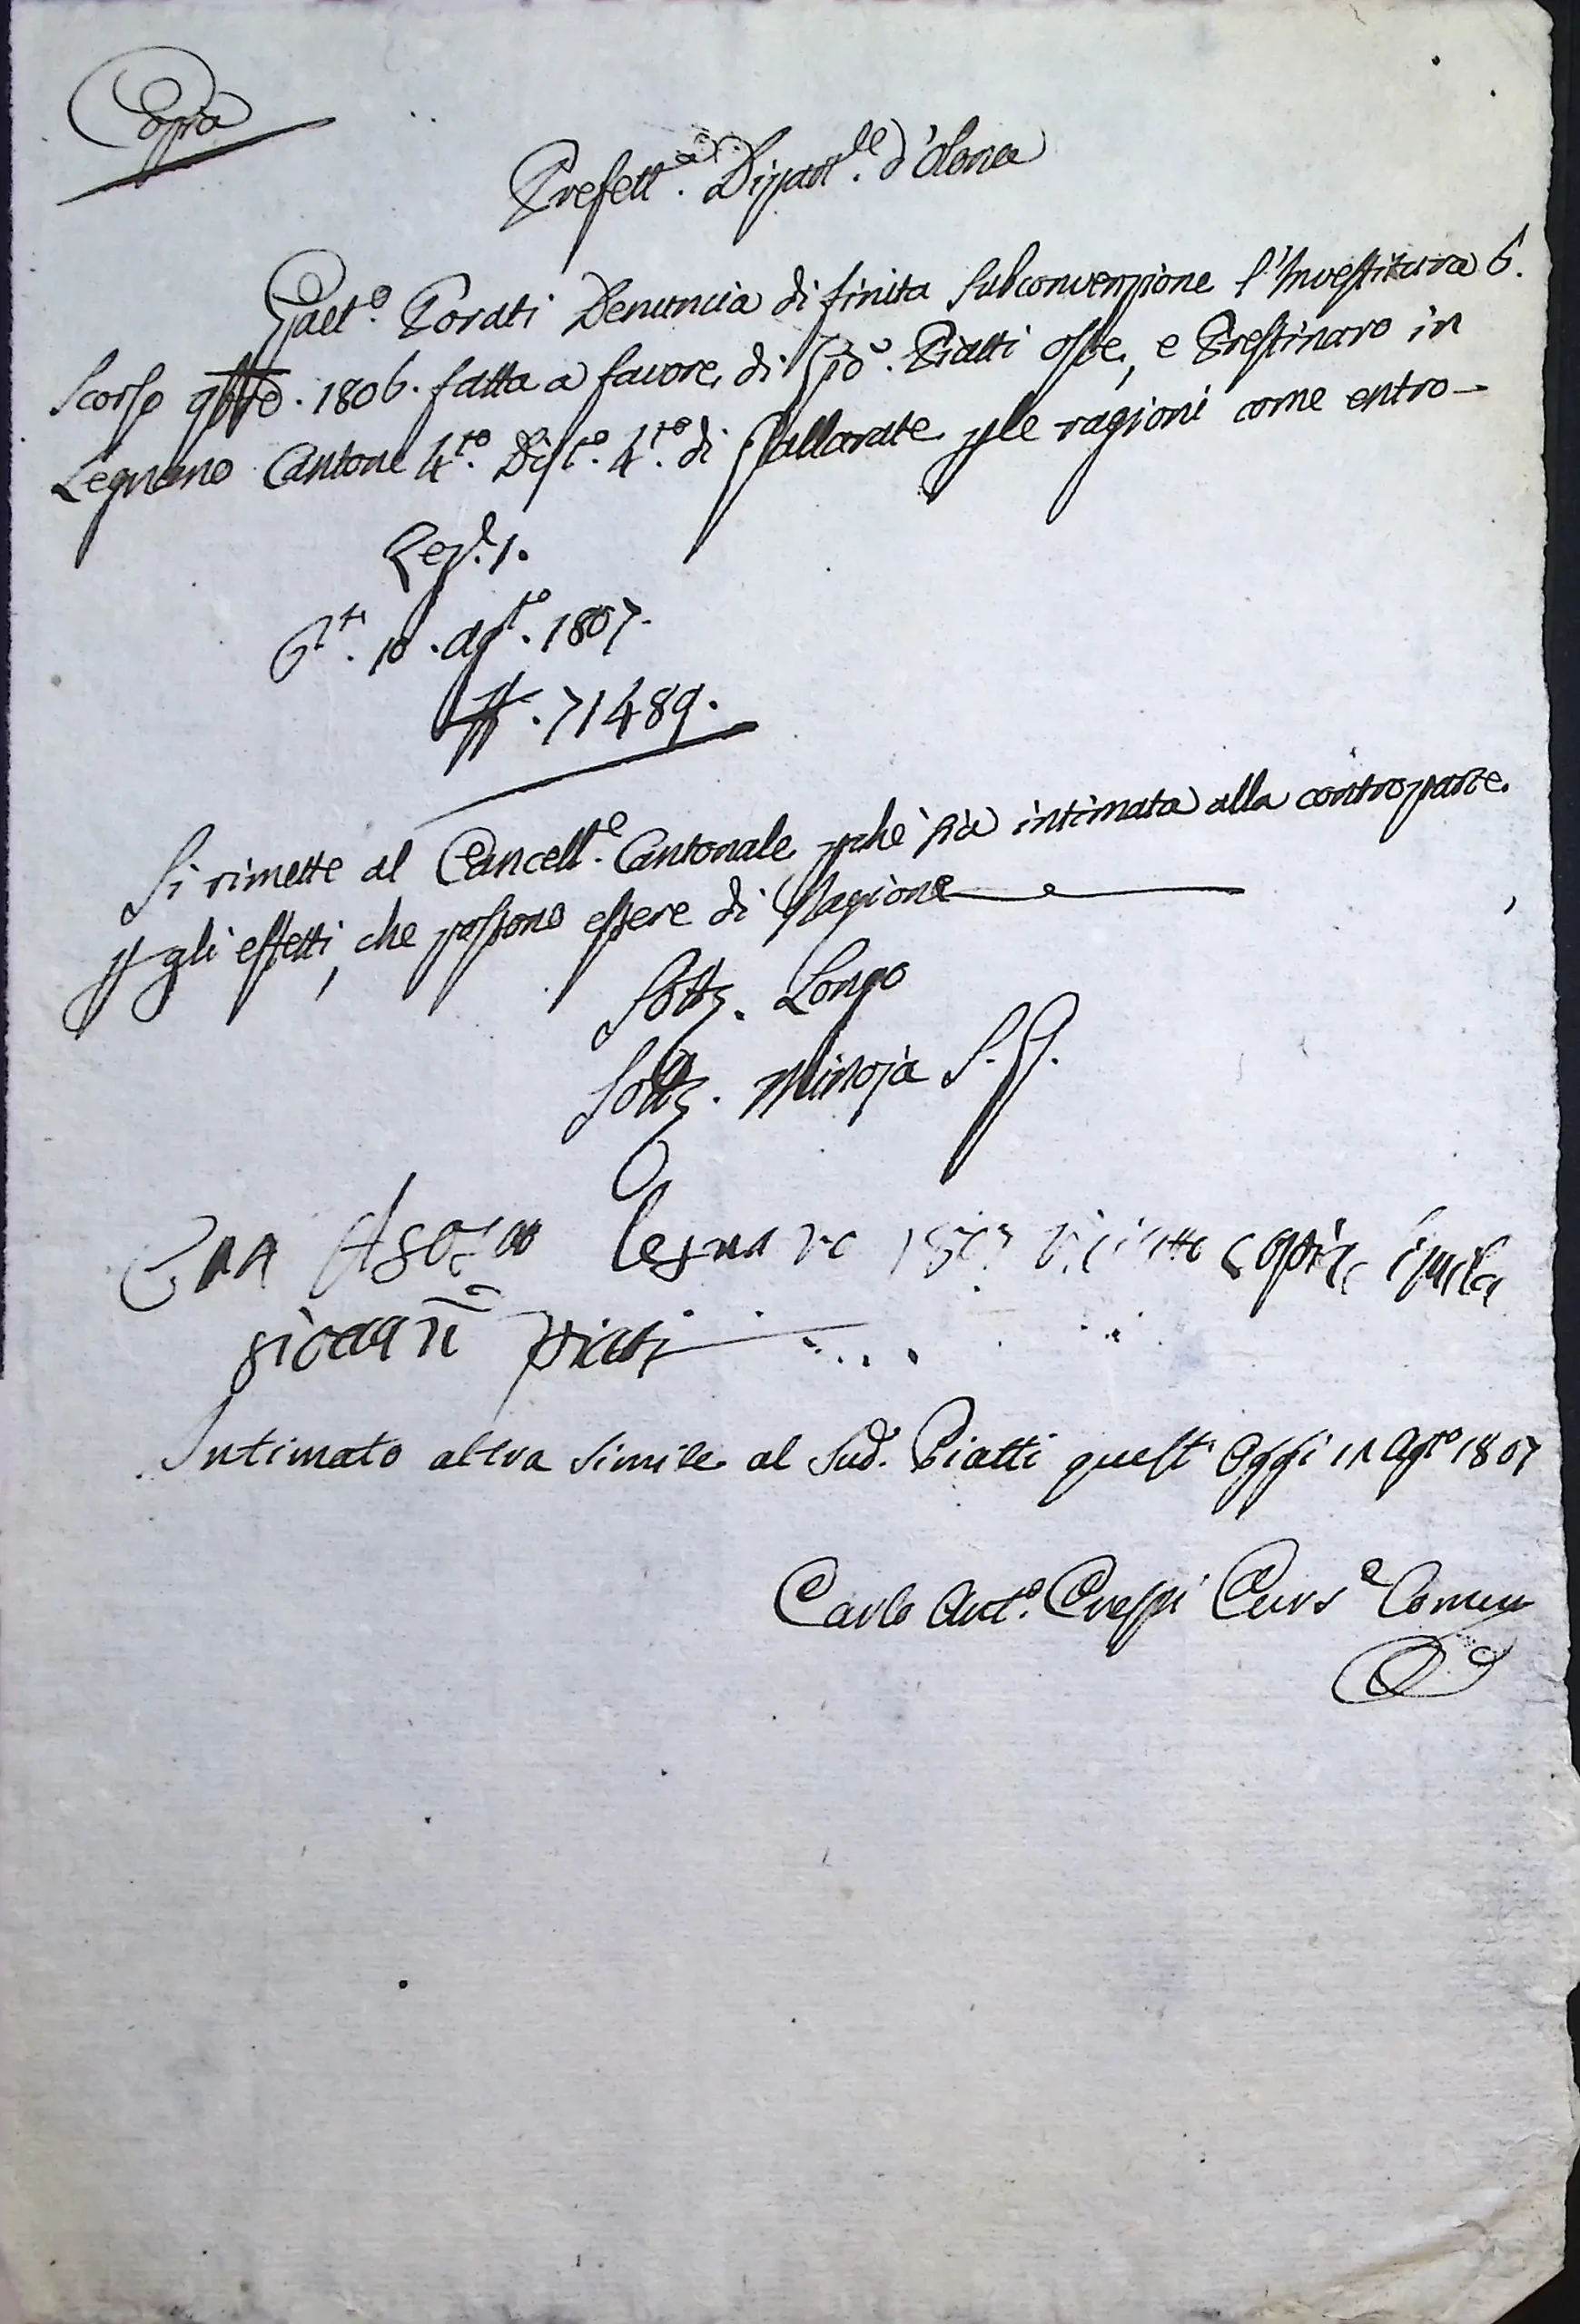 Copia
Prefett.a Dipart.le d'Olona
Gaet.o Porati Denuncia di finita Subconvenzione l'Investitura 6.
Scorso 9bre. 1806. fatta a favore di Gio. Piatti oste, e Prestinaro in
Legnano Cantone 4.to Dist.o 4.to di Gallarate ple ragioni come entro-
Reg. 1.
10. ag.to 1807.
N. 71489.
Si rimette al Cancell.e Cantonale pche sia intimata alla controparte
p gli effetti, che possono essere di Ragione
Sott. Longo
Sott. Minoja S. G.
Agosto legnano copia simile
giovani piati
Intimato altra simile al Sud. Piatti quest' Oggi 11 Ag.to 1807
Carlo Ant.o Crespi Curs.e Comun